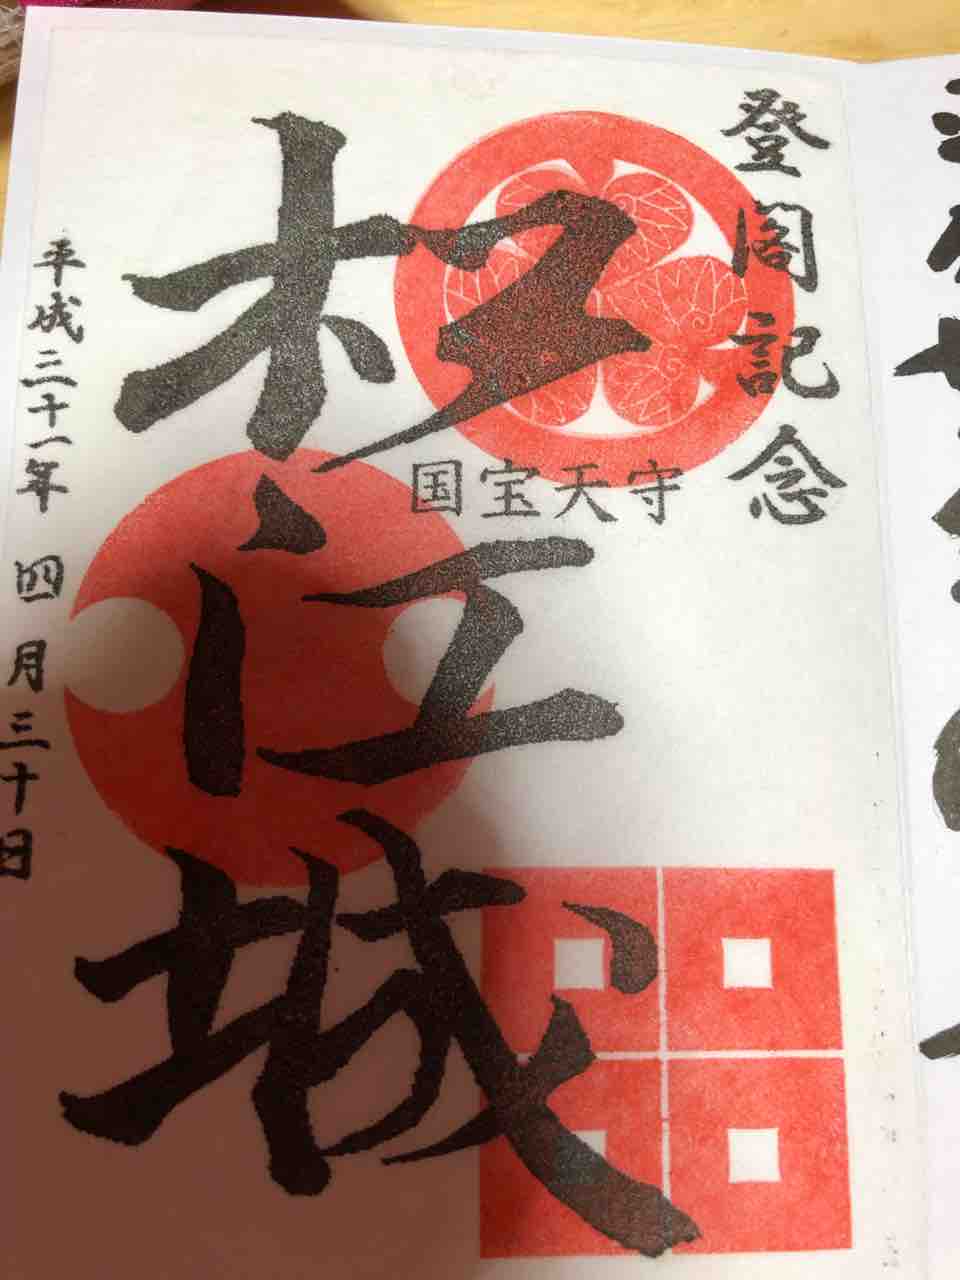 登閣記念
国宝天守
松江城
平成三十一年 四月三十日